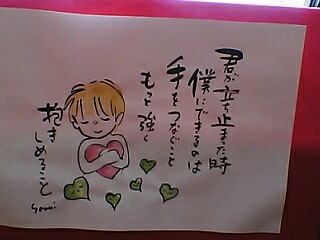 君が立ち止まった時
僕にできるのは
手をつなぐこと
もっと強く
抱きしめること